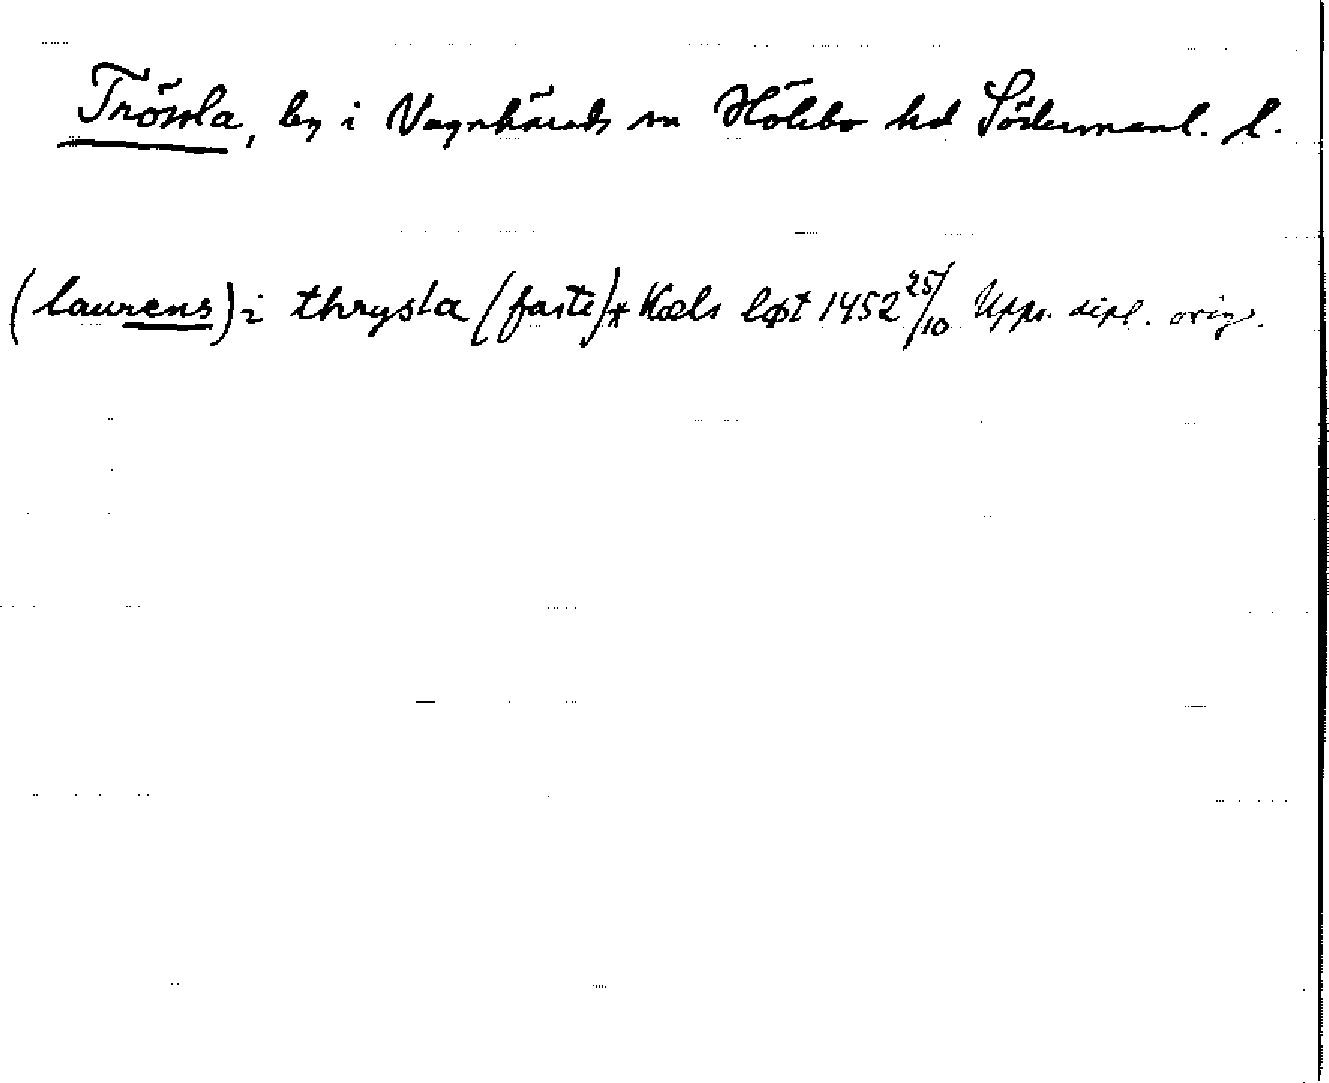 Trössla, by i Vagnhärads sn Hölebo hd Södermanl. l.
(laurens) i thrysla (faste) * Kæls løt 1452 25/10 Upps. dipl. orig.